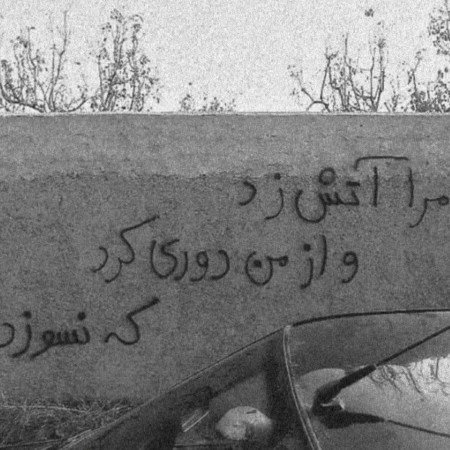 مرا آتش زد
و از من دوری کرد
که نسوزد